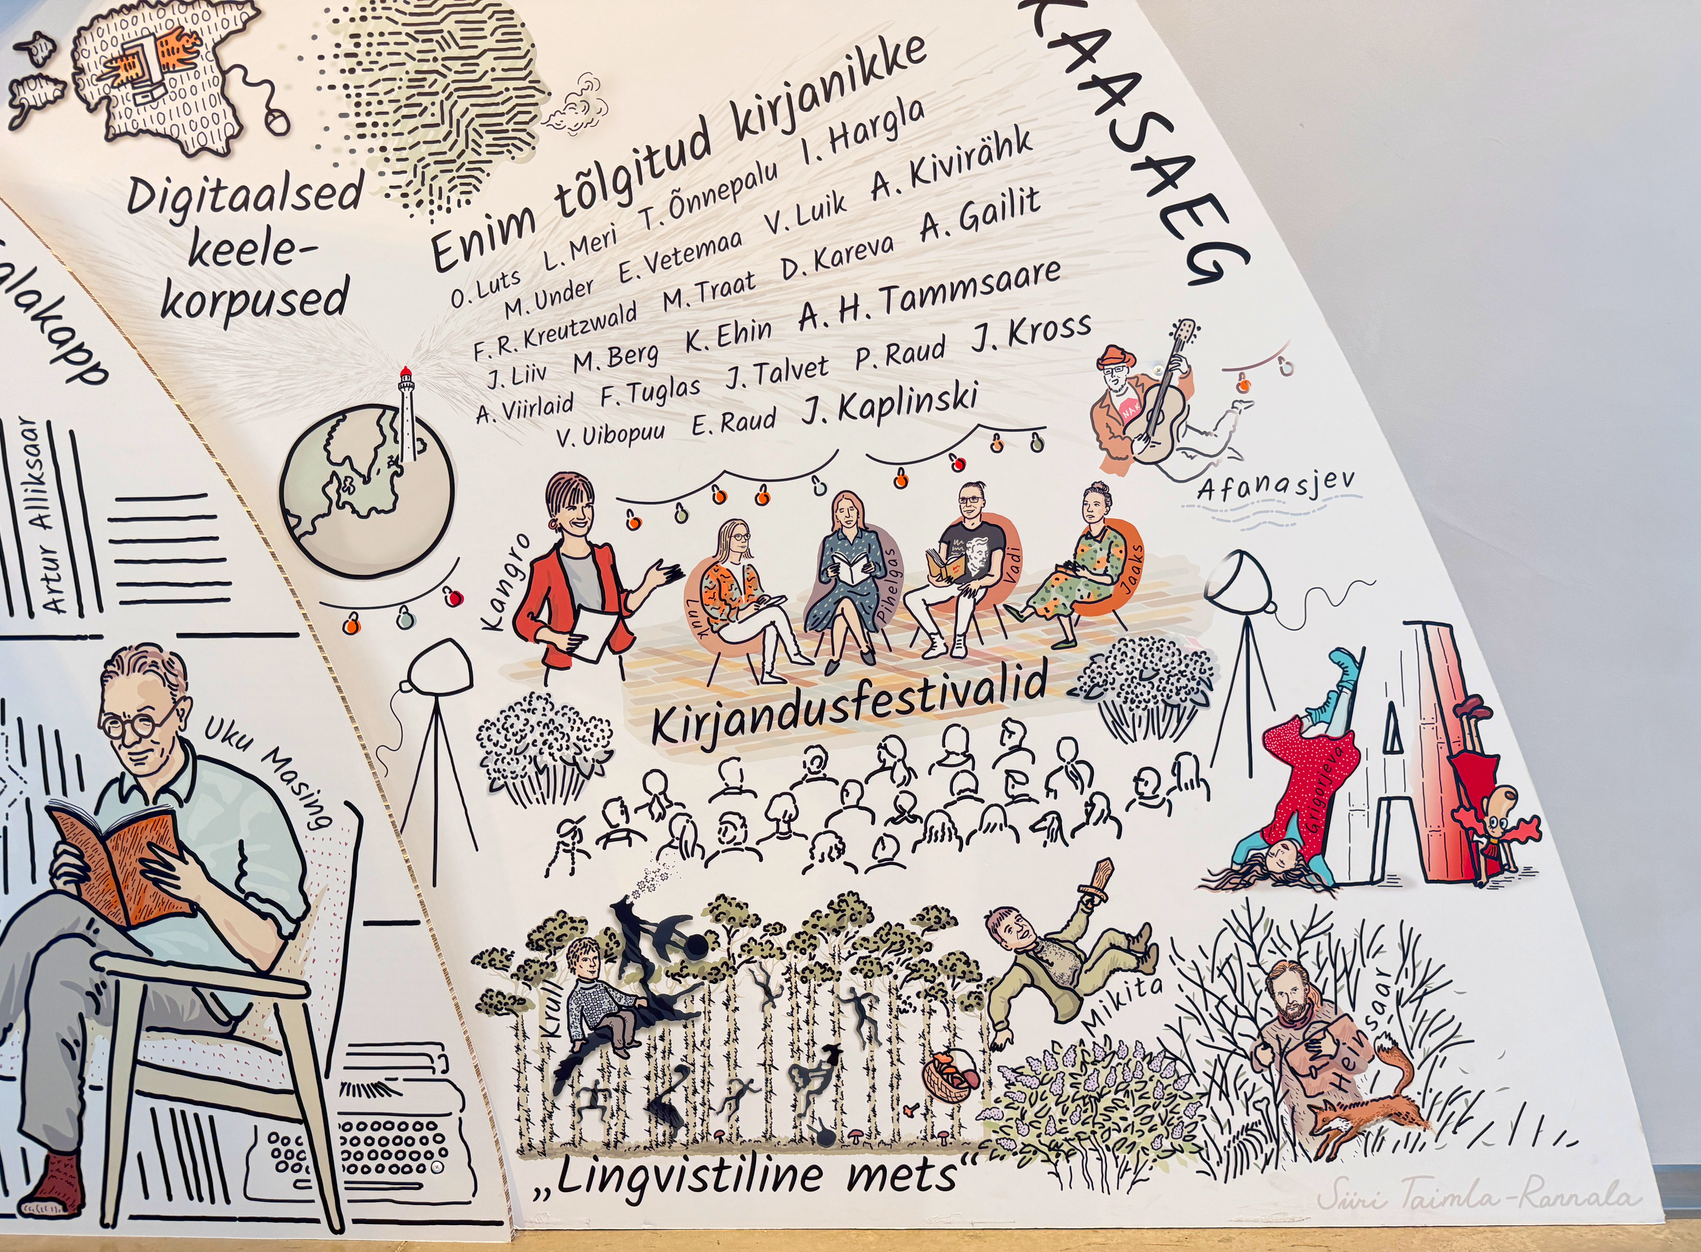 KAASAEG
Digitaalsed
keele-
korpused
Enim tõlgitud kirjanikke
O. Luts L. Meri T. Õnnepalu I. Hargla
M. Under E. Vetemaa V. Luik A. Kivirähk
F. R. Kreutzwald M. Traat D. Kareva A. Gailit
J. Liiv M. Berg K. Ehin A. H. Tammsaare
A. Viirlaid F. Tuglas J. Talvet P. Raud J. Kross
V. Uibopuu E. Raud J. Kaplinski
Artur Alliksaar
Uku Masing
Afanasjev
Kangro
Luuk
Pihelgas
Vadi
Jaaks
Kirjandusfestivalid
Grigorjeva
Krull
Mikita
Heinsaar
„Lingvistiline mets“
Siiri Taimla-Rannala